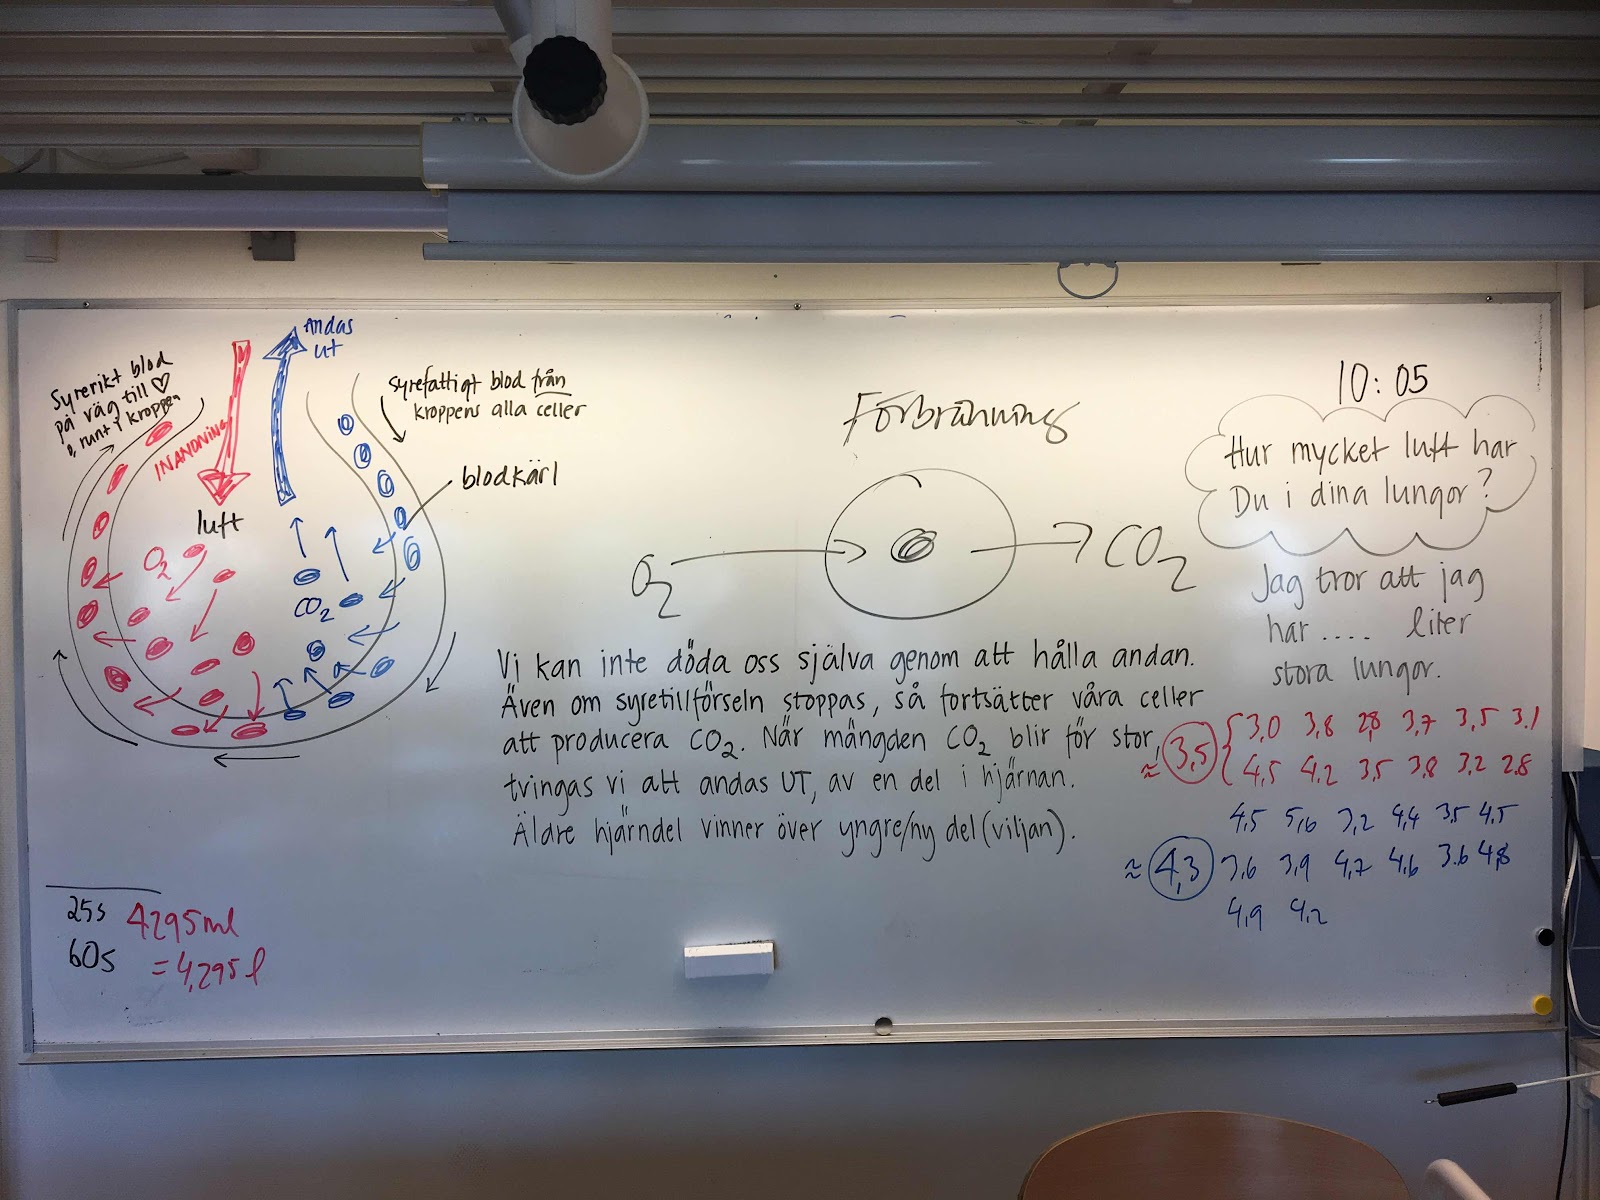 Syrerikt blod
på väg till ♡
o, runt i kroppen
INANDNING
luft
O2
Andas
ut
CO2
syrefattigt blod från
kroppens alla celler
blodkärl
Förbränning
O2
CO2
Vi kan inte döda oss själva genom att hålla andan.
Även om syretillförseln stoppas, så fortsätter våra celler
att producera CO2. När mängden CO2 blir för stor,
tvingas vi att andas UT, av en del i hjärnan.
Äldre hjärndel vinner över yngre/ny del (viljan).
10:05
Hur mycket luft har
Du i dina lungor?
Jag tror att jag
har .... liter
stora lungor.
≈ 3,5 { 3,0 3,8 2,8 3,7 3,5 3.1
4,5 4,2 3,5 3,8 3,2 2.8
4,5 5,6 3,2 4,4 3,5 4,5
≈ 4,3 3,6 3,9 4,7 4,6 3.6 4,8
4,9 4,2
25s 4295 ml
60s = 4,295 l